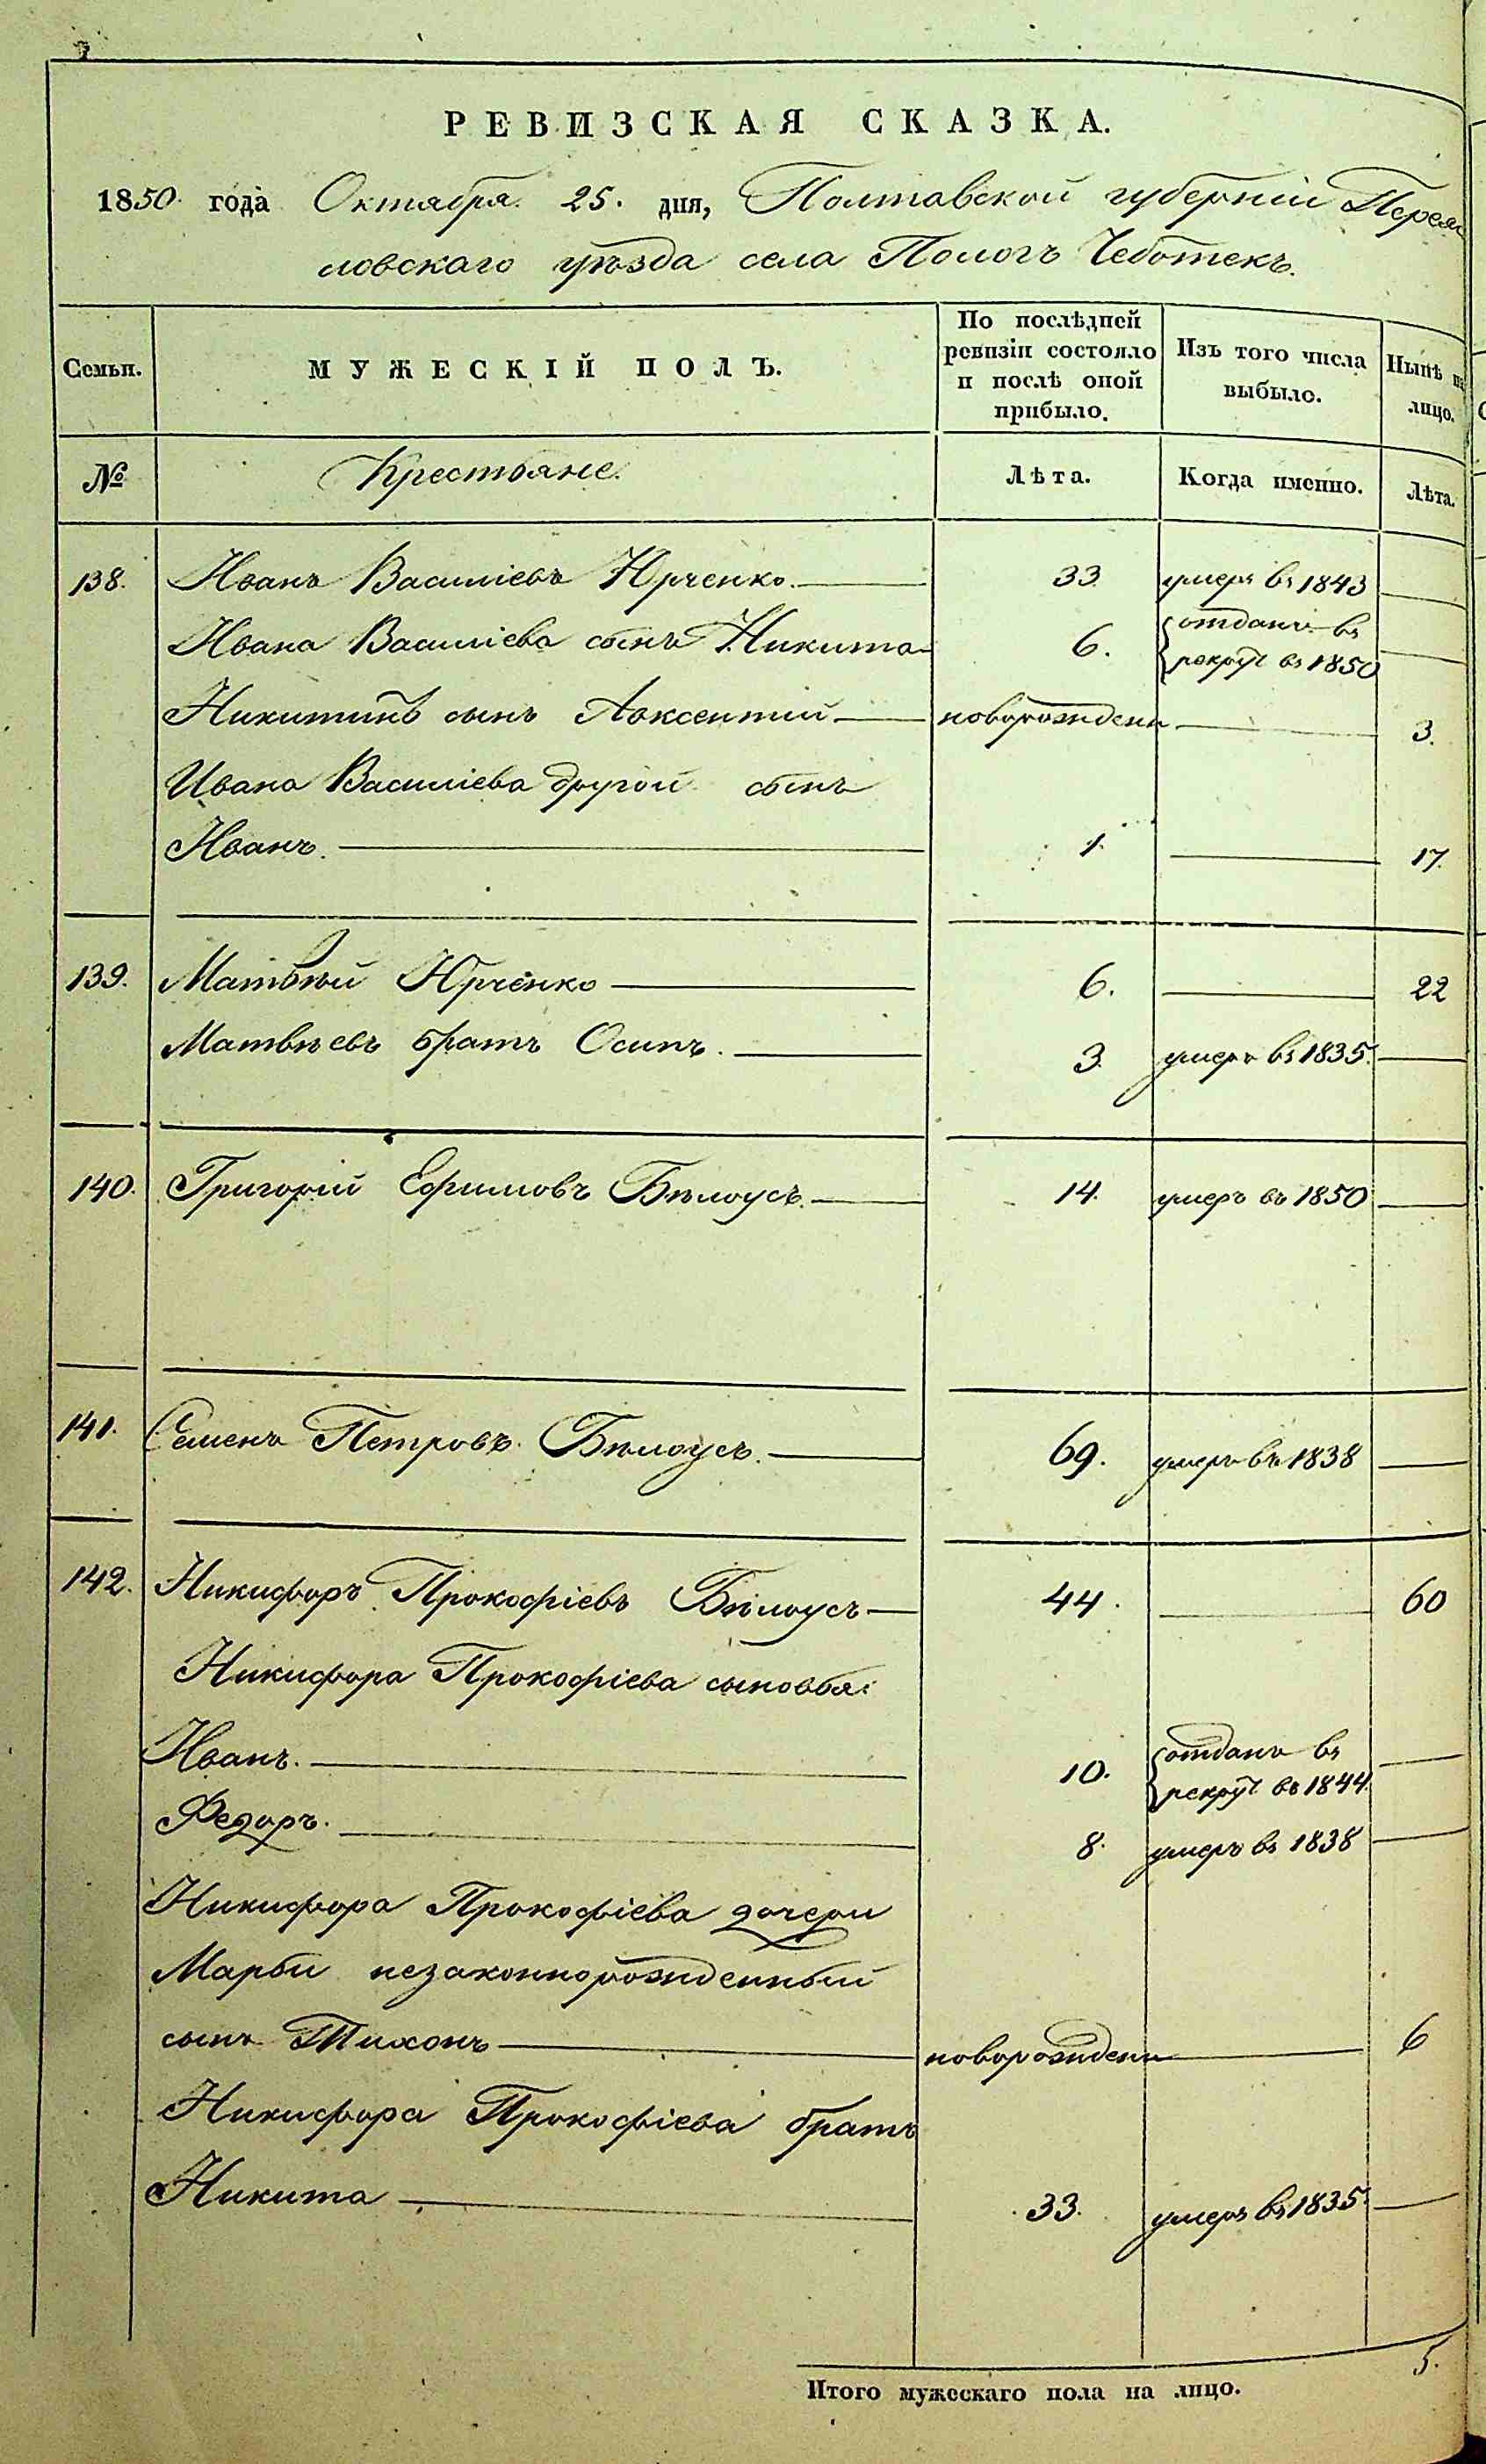 РЕВИЗСКАЯ СКАЗКА.
1850 года Октября 25. дня, Полтавской губерніи Переяс
ловскаго уѣзда села Пологъ Чеботекъ.
Семьи. МУЖЕСКІЙ ПОЛЪ. По послѣдней ревизіи состояло и послѣ оной прибыло. Изъ того числа выбыло. Нынѣ на лицо.
№ Крестьяне. Лѣта. Когда именно. Лѣта.
138. Иванъ Василіевъ Юрченко. 33. умеръ въ 1843
Ивана Василіева сынъ Никита 6. отданъ въ рекруты въ 1850
Никитинъ сынъ Авксентій новорожденъ 3.
Ивана Василіева другой сынъ
Иванъ. 1. 17.
139. Матвѣй Юрченко 6. 22
Матвѣевъ братъ Осипъ. 3. умеръ въ 1835.
140. Григорій Ефимовъ Бѣлоусъ. 14. умеръ въ 1850
141. Семенъ Петровъ Бѣлоусъ. 69. умеръ въ 1838
142. Никифоръ Прокофіевъ Бѣлоусъ 44. 60
Никифора Прокофіева сыновья:
Иванъ. 10. отданъ въ рекруты въ 1844
Федоръ. 8. умеръ въ 1838
Никифора Прокофіева дочери
Марьи незаконнорожденный
сынъ Тихонъ новорожденъ 6
Никифора Прокофіева братъ
Никита 33. умеръ въ 1835.
5.
Итого мужескаго пола на лицо.